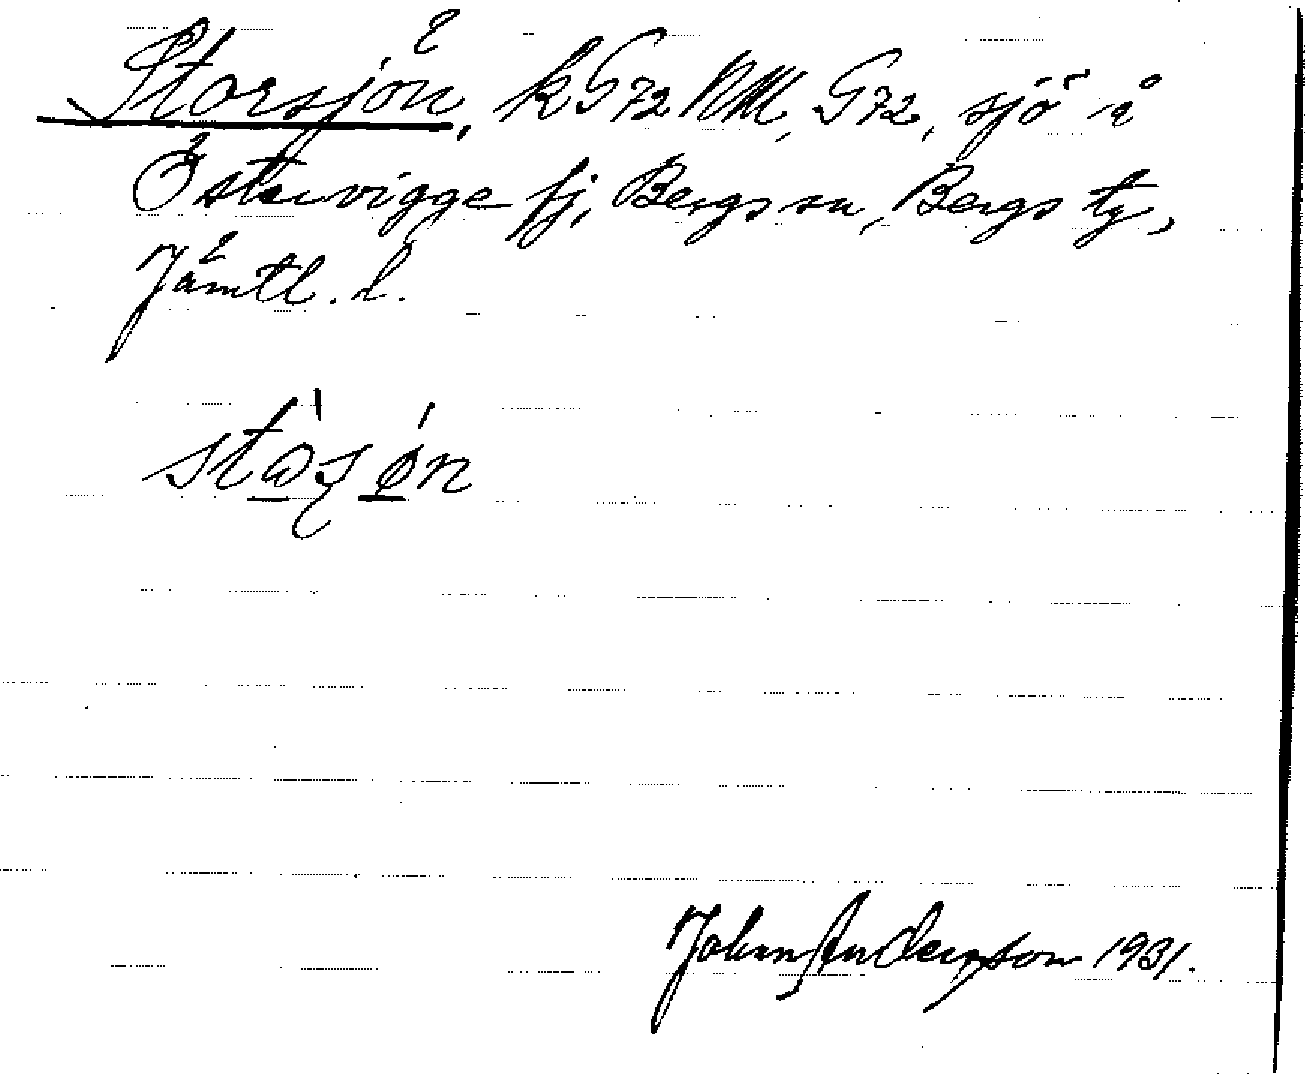 Storsjön, k G72 RM, G72, sjö å
Östervigge fj, Bergs sn, Bergs tg,
Jämtl. l.
Johan Andersson 1931.